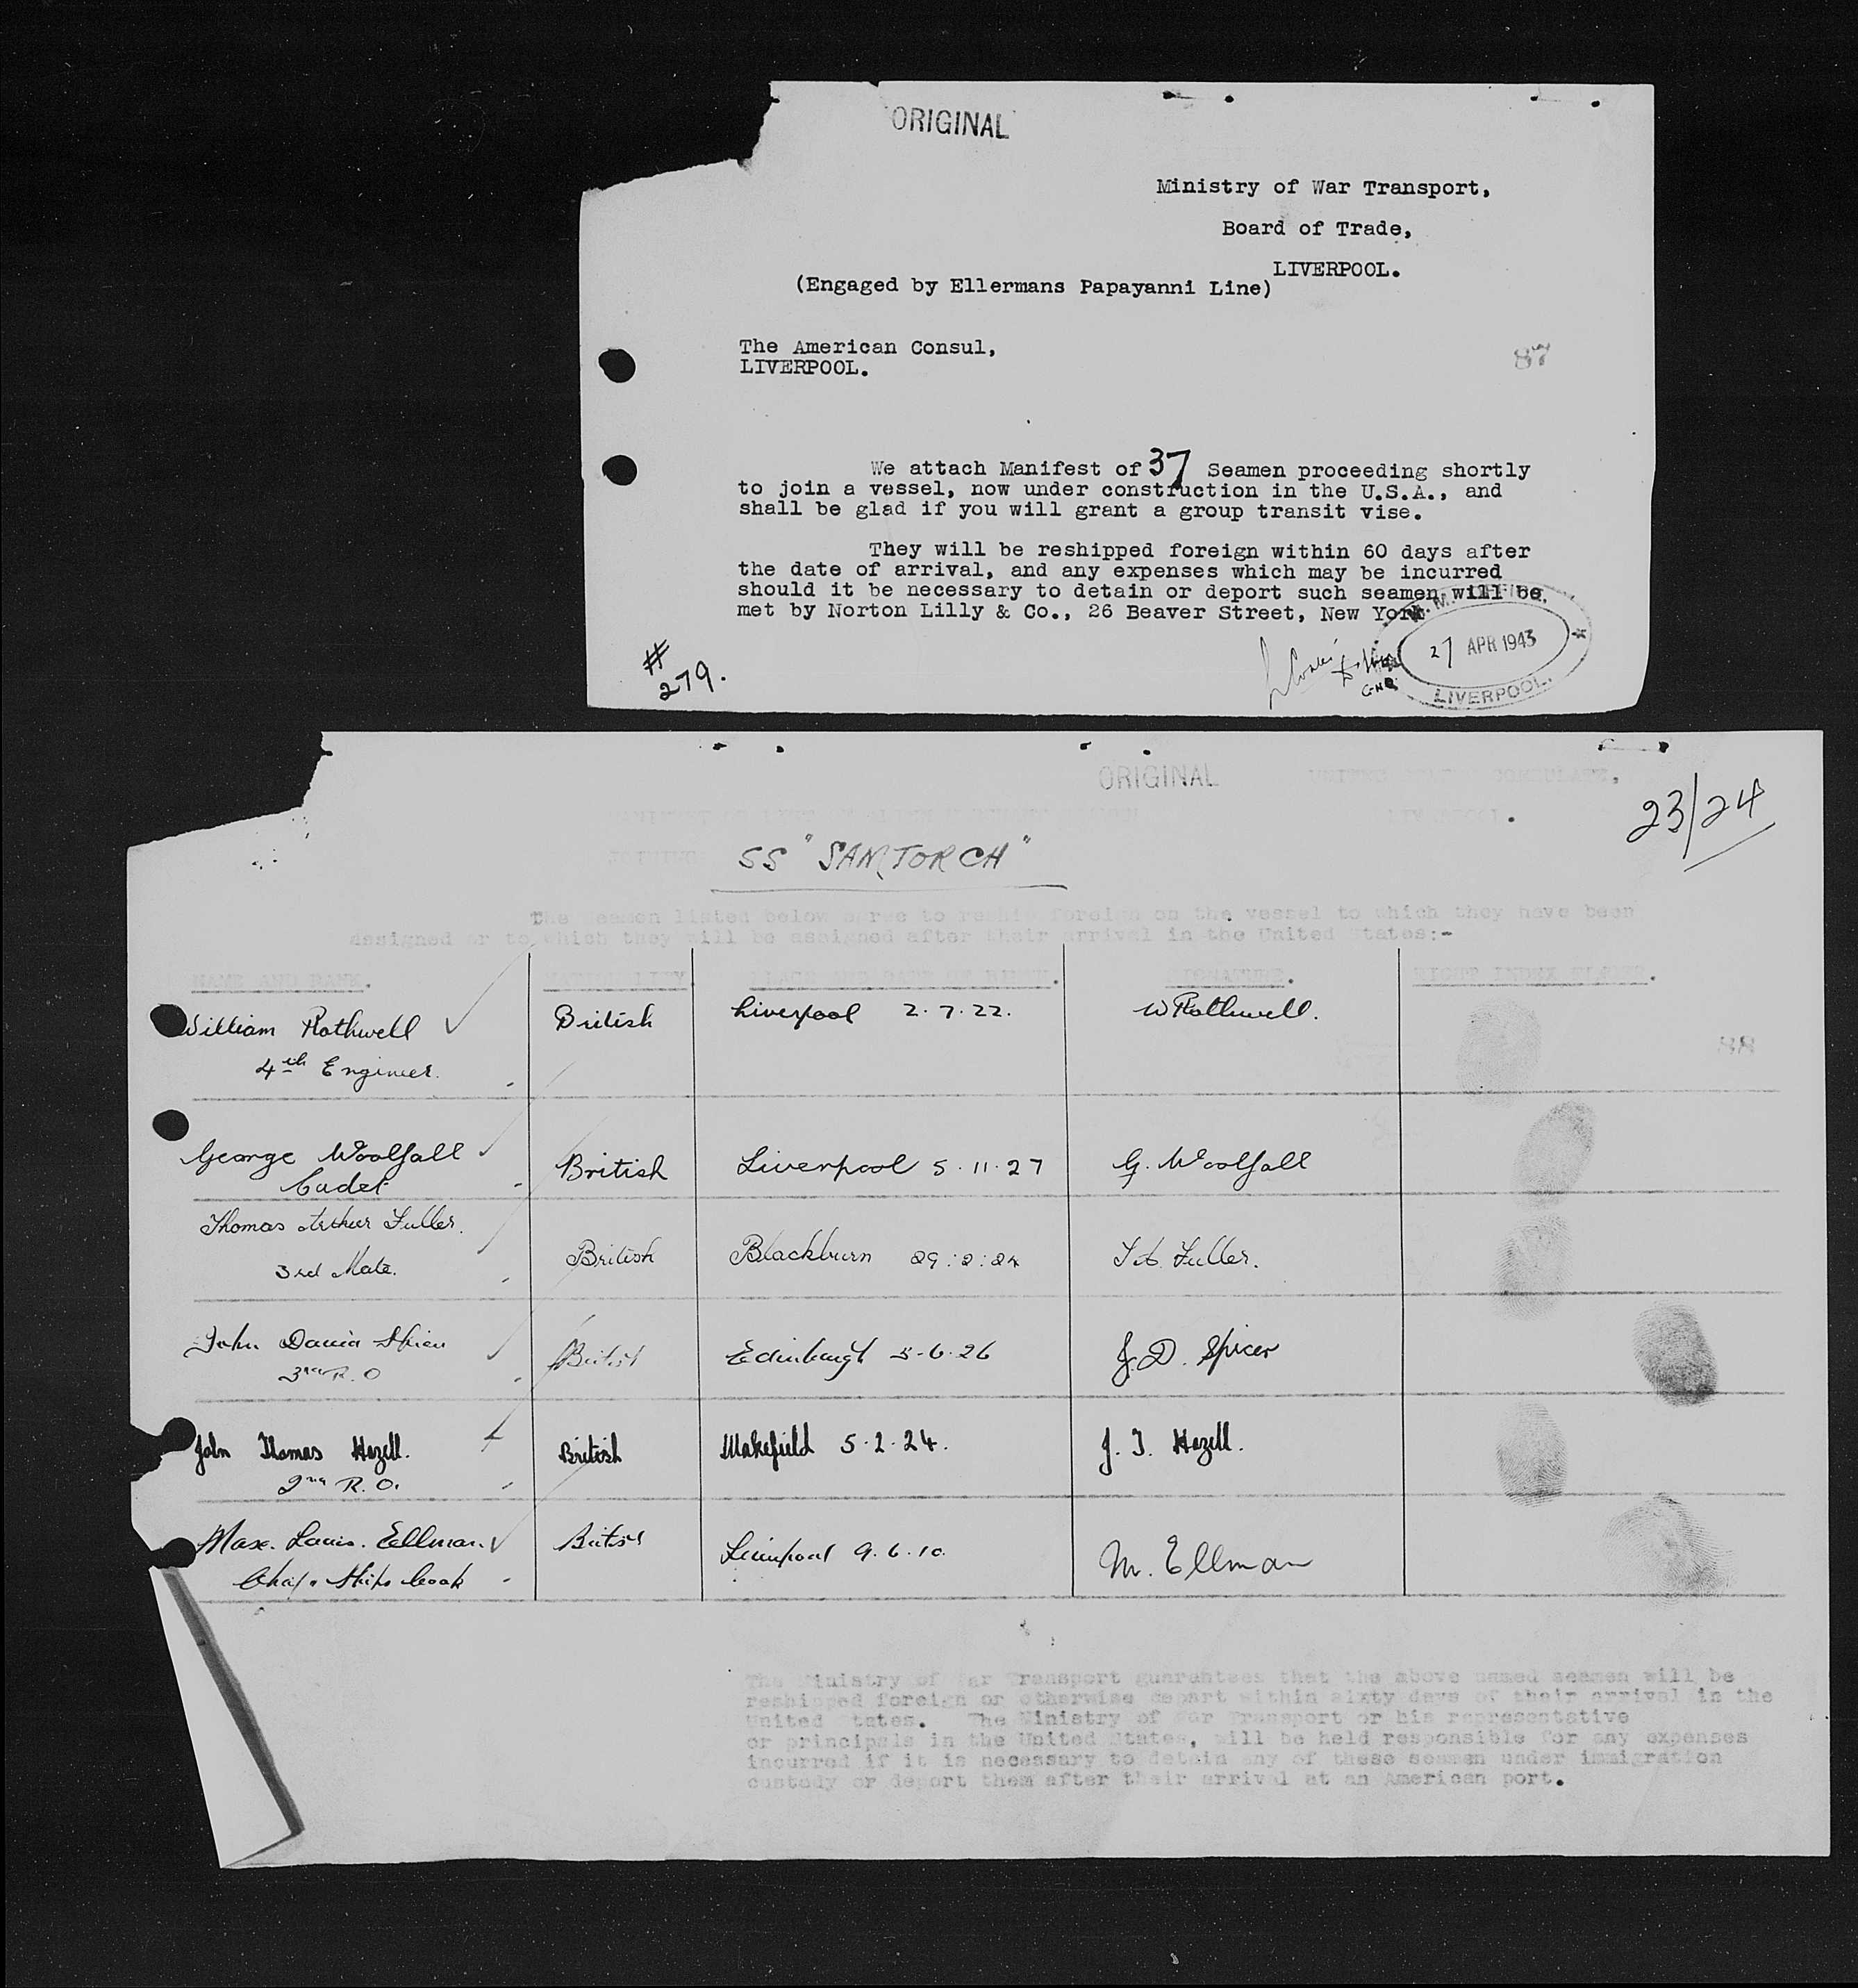 ORIGINAL
Ministry of War Transport,
Board of Trade,
LIVERPOOL.
(Engaged by Ellermans Papayanni Line)
The American Consul,
LIVERPOOL.
87
We attach Manifest of 37 Seamen proceeding shortly
to join a vessel, now under construction in the U.S.A., and
shall be glad if you will grant a group transit vise.
They will be reshipped foreign within 60 days after
the date of arrival, and any expenses which may be incurred
should it be necessary to detain or deport such seamen will be
met by Norton Lilly & Co., 26 Beaver Street, New York
27 APR 1943
LIVERPOOL.
#
279.
ORIGINAL
UNITED STATES CONSULATE,
LIVERPOOL.
23/24
JOINING
SS "SAMTORCH"
The seamen listed below agree to reship foreign on the vessel to which they have been
assigned or to which they will be assigned after their arrival in the United States:-
NAME AND RANK. NATIONALITY PLACE AND DATE OF BIRTH. SIGNATURE. RIGHT INDEX FINGER.
William Rothwell British Liverpool 2.7.22. W Rothwell.
4th Engineer.
88
George Woolfall British Liverpool 5.11.27 G. Woolfall
Cadet
Thomas Arthur Fuller. British Blackburn 29:2:24 T.A. Fuller.
3rd Mate.
John David Spicer British Edinburgh 5-6-26 J.D. Spicer
3rd R.O
John Thomas Hezell. British Wakefield 5.2.24. J. T. Hezell.
2nd R.O.
Max. Louis. Ellman. British Liverpool 9.6.10. M. Ellman
Ships Cook
The Ministry of War Transport guarantees that the above named seamen will be
reshipped foreign or otherwise depart within sixty days of their arrival in the
United States. The Ministry of War Transport or his representative
or principals in the United States, will be held responsible for any expenses
incurred if it is necessary to detain any of these seamen under immigration
custody or deport them after their arrival at an American port.